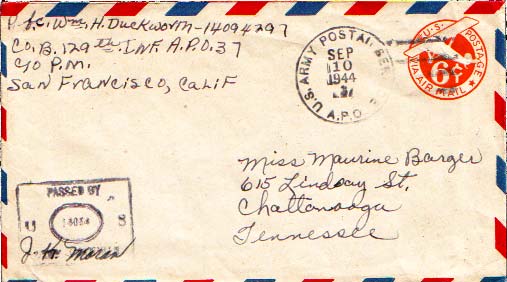 P.f.c. Wm. H. Duckworth-14094297
Co. B. 129th INF. A.P.O. 37
c/o P.M.
San Francisco, Calif
U.S. ARMY POSTAL SER.
SEP
10
1944
A.P.O.
U.S. POSTAGE
6¢
VIA AIR MAIL
Miss Maurine Barger
615 Lindsay St.
Chattanooga
Tennessee
PASSED BY
U S